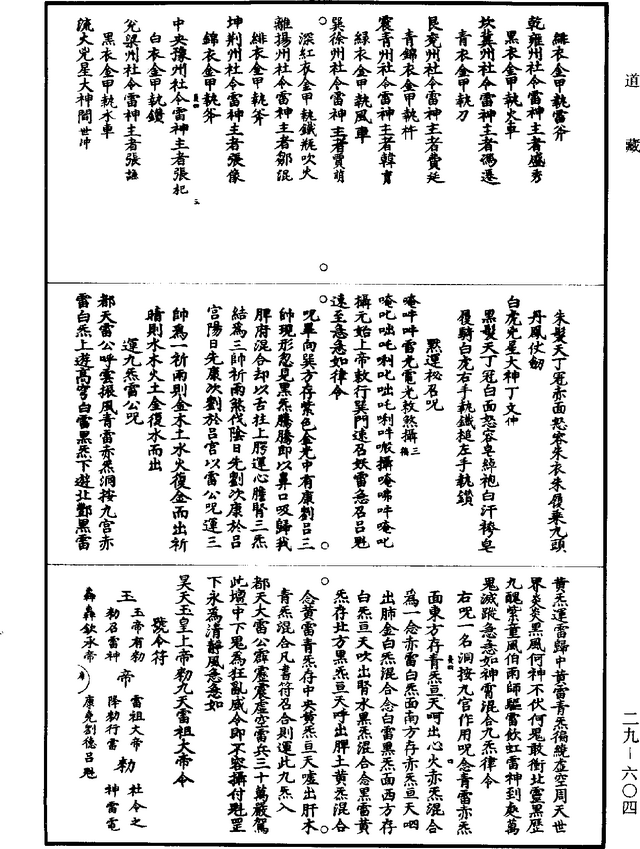 道藏
緋衣金甲執雷斧
乾雍州社令雷神主者盛秀
黑衣金甲執火車
坎冀州社令雷神主者馮遷
青衣金甲執刀
艮兗州社令雷神主者費廷
青錦衣金甲執杵
震青州社令雷神主者韓賓
綠衣金甲執風車
巽徐州社令雷神主者賈萌
深紅衣金甲執鐵瓶吹火
離揚州社令雷神主者鄒混
緋衣金甲執斧
坤荆州社令雷神主者張像
錦衣金甲執斧
中央豫州社令雷神主者張杞
白衣金甲執鑽
兌梁州社令雷神主者張
黑衣金甲執水車
流火光星大神閻世沖
朱髮天丁冠赤面怒容朱衣朱履乘九頭
丹鳳仗劒
白虎光星大神丁文仲
黑髮天丁冠白面怒容皂綽袍白汗袴皂
履騎白虎右手執鐵槌左手執鑽
默運祕召呪
唵吽吽雷光電光敕煞攝
唵吒咄吒唎吒咄吒唎吽攝唵吽唵吒
攝元始上帝敕行巽門速召妖雷急召呂魁
速至急急如律令
呪畢向巽方存紫色金光中有康劉呂三
帥現形忽見黑炁騰騰即以鼻口吸歸我
脾府混合却以舌拄上腭運心腎三炁
結為三帥祈雨煞伐陰日先劉次康於呂
宮陽日先康次劉於呂宮以雷公呪運三
帥為一祈雨則金木土水火復金而出祈
晴則水木火土金復水而出
運九炁雷公呪
都天雷公呼雲撮風青雷赤炁洞按九宮赤
雷白炁上遊高穹白雷黑炁下遊北酆黑雷
黃炁運雷歸中黃雷青炁徧繞虛空周天世
界炎炎黑風何神不伏何鬼敢衝北靈黑歷
九醜紫童風伯雨師驅雷飲虹雷神到處萬
鬼滅蹤急急如神霄混合九炁律令
右呪一名洞按九宮作用呪念青雷赤炁
面東方存青炁亘天呵出心火赤炁混合
為一念赤雷白炁面南方存赤炁亘天呬
出肺金白炁混合念白雷黑炁面西方存
白炁亘天吹出腎水黑炁混合念黑雷黃
炁存北方黑炁亘天呼出脾土黃炁混合
念黃雷青炁存中央黃炁亘天噓出肝木
青炁混合凡書符召合則運此九炁入
都天大雷公霹靂震虛空雷兵三十萬嚴駕
此壇中下鬼為狂亂威令即不容攝付魁罡
下永為清靜風急急如
昊天玉皇上帝勑九天雷祖大帝令
號令符
玉 玉帝有勑 勑召雷神
帝 雷祖大帝 降勑行雷
勑 社令之神雷電
轟轟欽承帝 康光劉德呂魁
二九—六〇四